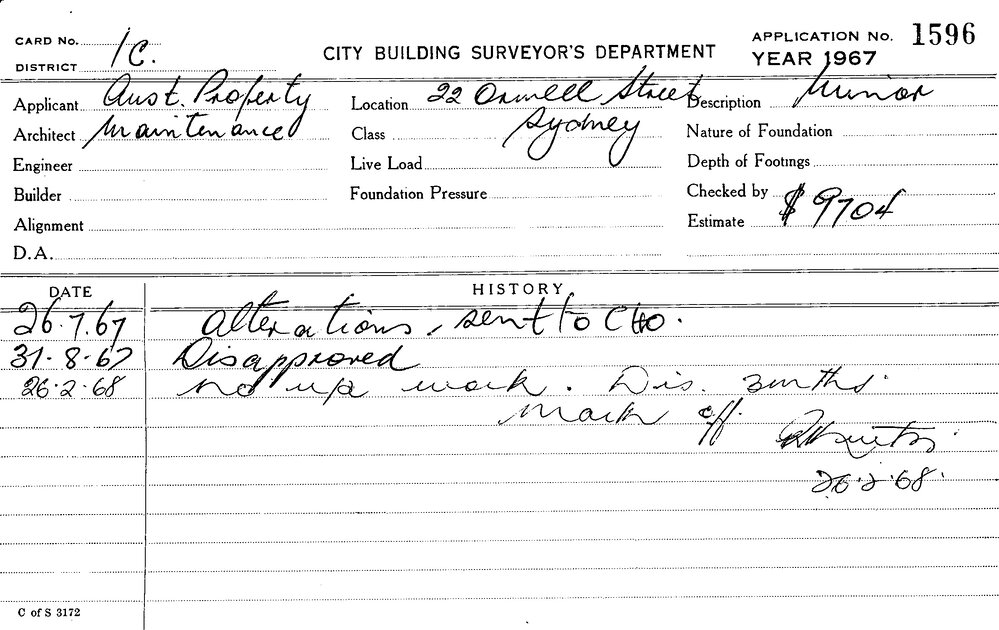 CARD No.
DISTRICT 1C.
CITY BUILDING SURVEYOR'S DEPARTMENT
APPLICATION No. 1596
YEAR 1967
Applicant Aust. Property
Architect Maintenance
Engineer
Builder
Alignment
D.A.
Location 22 Orwell Street
Class Sydney
Live Load
Foundation Pressure
Description Minor
Nature of Foundation
Depth of Footings
Checked by
Estimate $9704
DATE HISTORY
26.7.67 Alterations, sent to CHO.
31-8-67 Disapproved
26.2.68 no work. Dis. 3 mths.
Mark off.
26.2.68.
C of S 3172